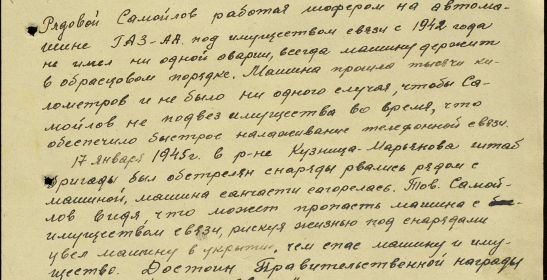 Рядовой Самойлов работая шофером на автома-
шине ГАЗ-АА под имуществом связи с 1942 года
не имел ни одной аварии, всегда машину держит
в образцовом порядке. Машина прошла тысячи ки-
лометров и не было ни одного случая, чтобы Са-
мойлов не подвез имущества во время, что
обеспечило быстрое налаживание телефонной связи.
17 января 1945г. в р-не Кузница-Марьянова штаб
бригады был обстрелян снаряды рвались рядом с
машиной, машина санчасти загорелась. Тов. Самой-
лов видя, что может пропасть машина с
имуществом связи, рискуя жизнью под снарядами
увел машину в укрытие, чем спас машину и иму-
щество. Достоин Правительственной награды